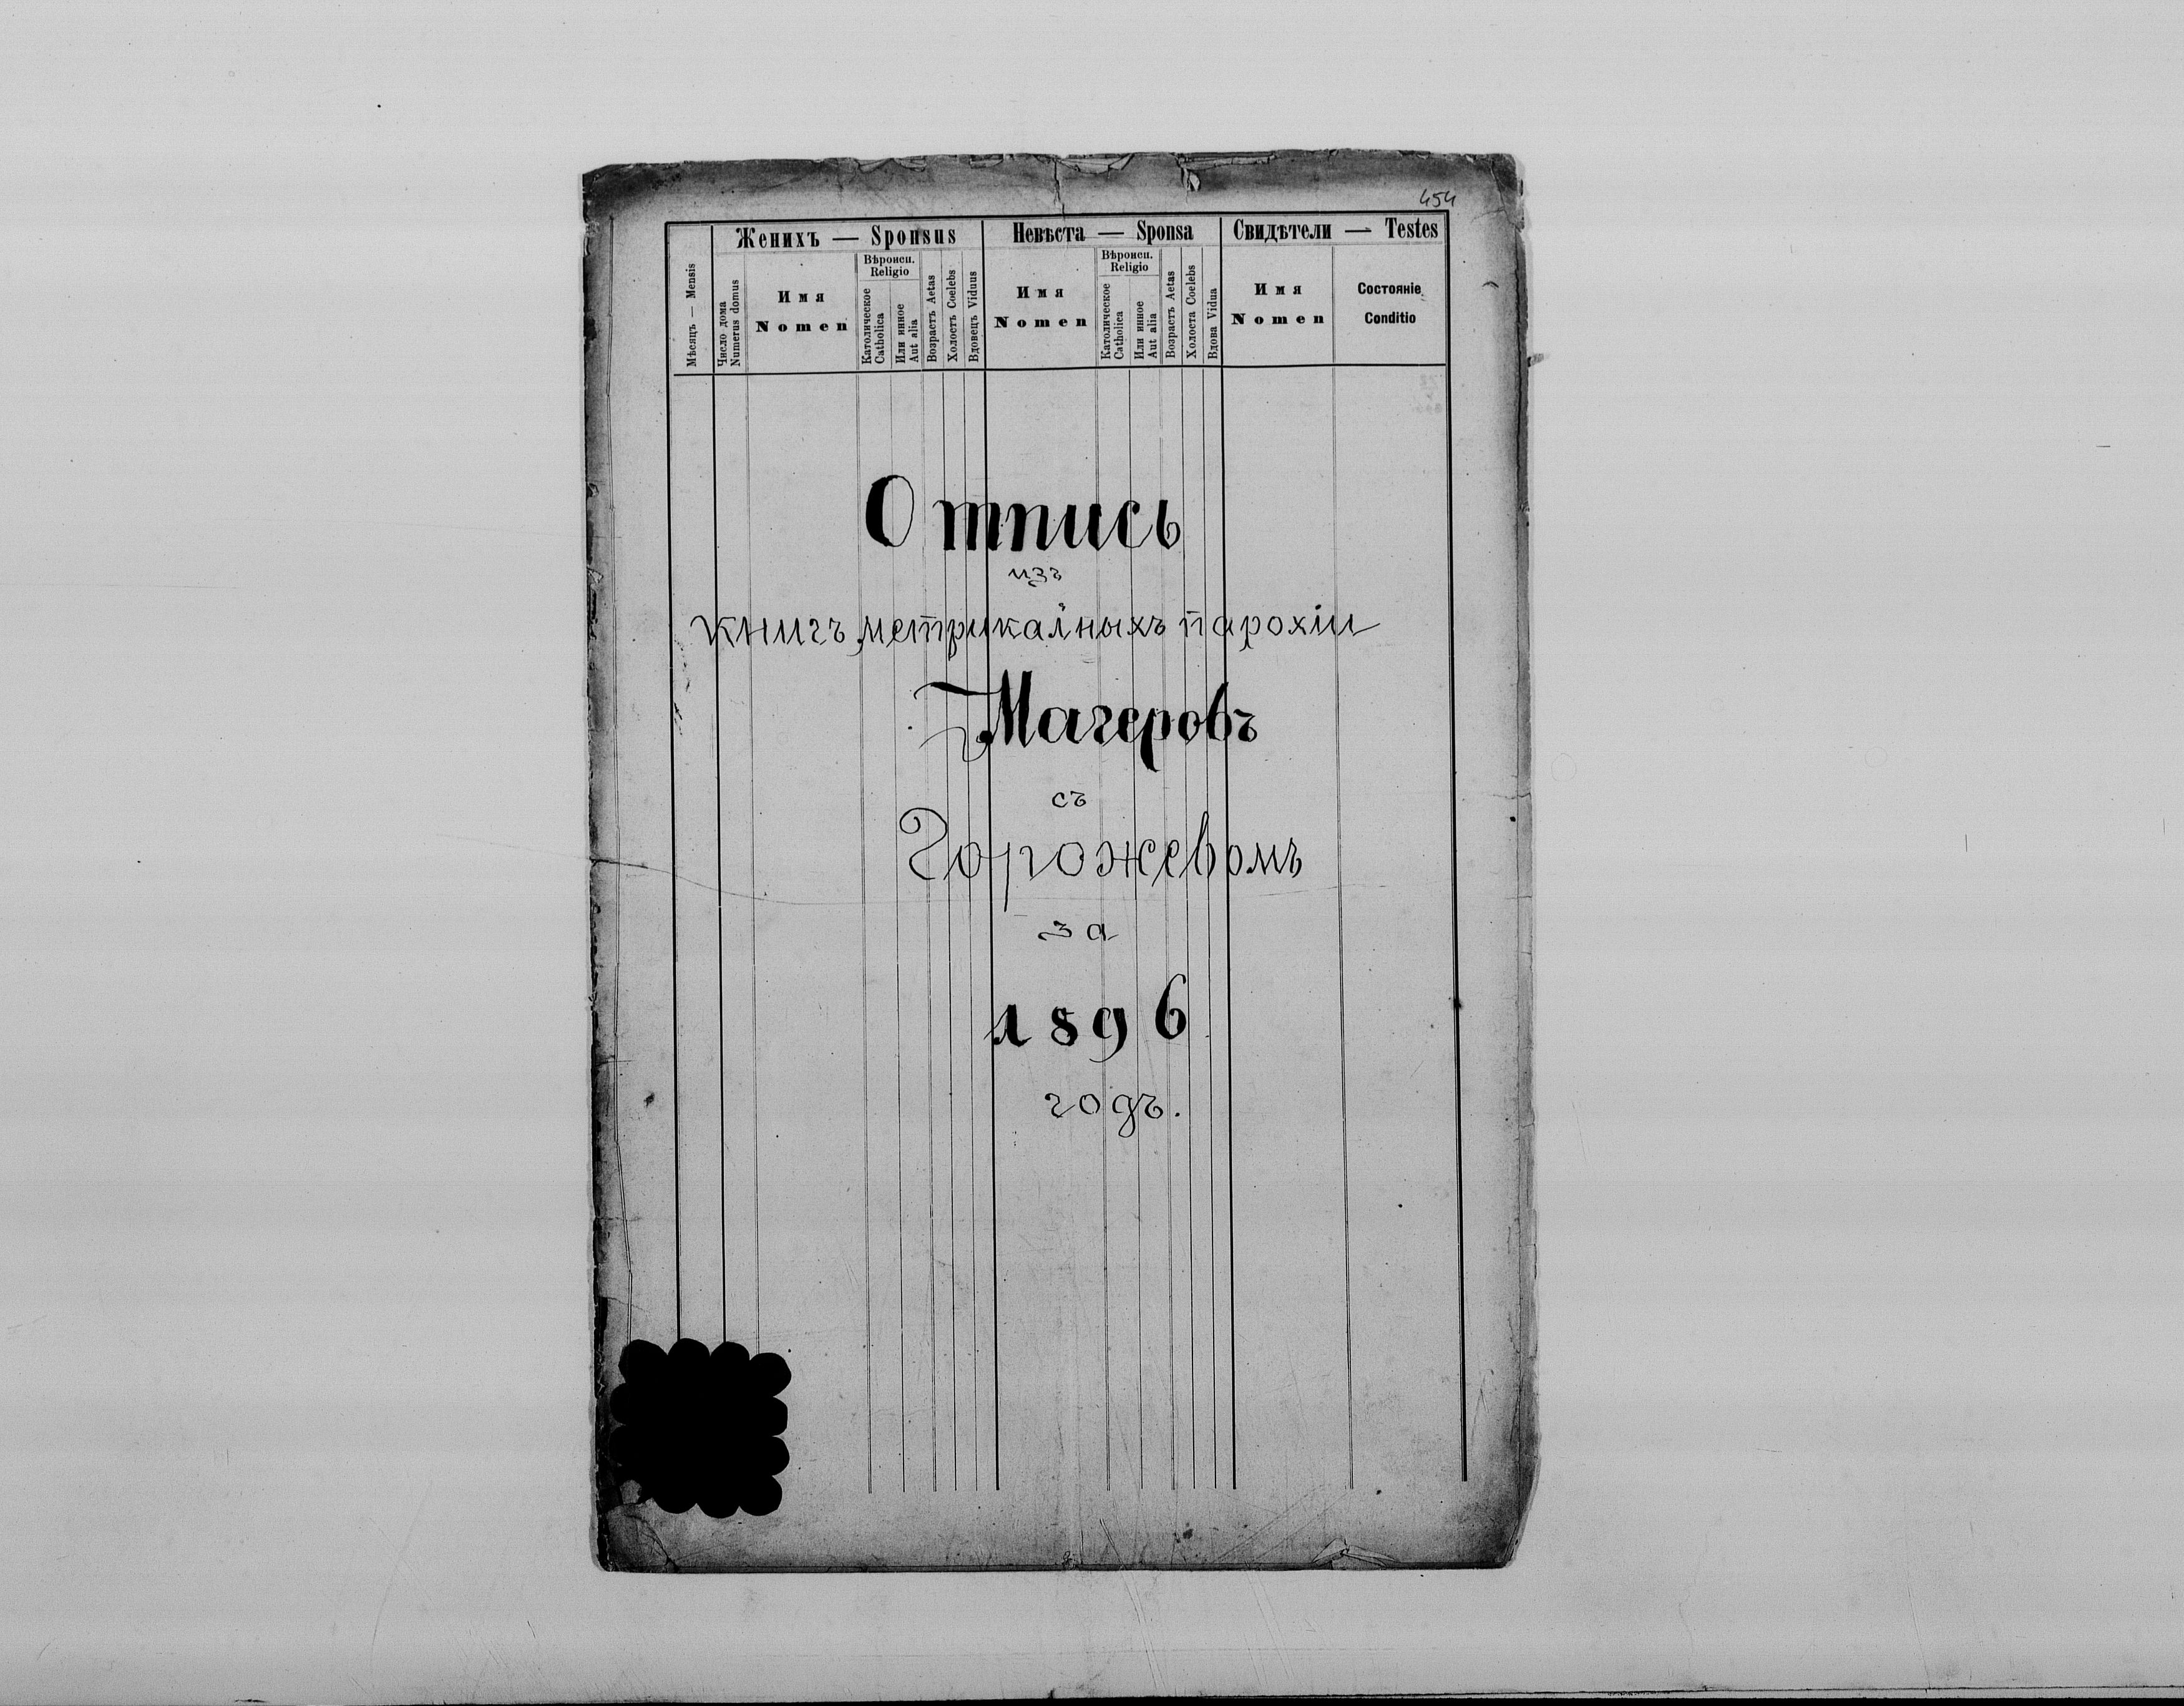 454
Женихъ — Sponsus
Невѣста — Sponsa
Свидѣтели — Testes
Мѣсяцъ — Mensis
Число дома
Numerus domus
Имя
Nomen
Вѣроисп.
Religio
Католическое
Catholica
Или инное
Aut alia
Возрастъ Aetas
Холостъ Coelebs
Вдовецъ Viduus
Имя
Nomen
Вѣроисп.
Religio
Католическое
Catholica
Или инное
Aut alia
Возрастъ Aetas
Холоста Coelebs
Вдова Vidua
Имя
Nomen
Состояніе
Conditio
Отпись
изъ
книгъ метрикальныхъ парохіи
Магеровъ
съ
Горожевомъ
за
1896
годъ.